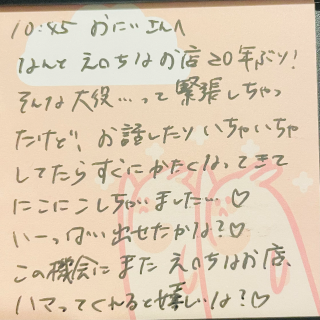 10:45 おにいさんへ
なんと えっちなお店20年ぶり！
そんな大役…って緊張しちゃっ
たけど、お話したりいちゃいちゃ
してたらすぐにかたくなってきて
にこにこしちゃいました…♡
いーっぱい出せたかな？♡
この機会にまた えっちなお店、
ハマってくれると嬉しいな？♡